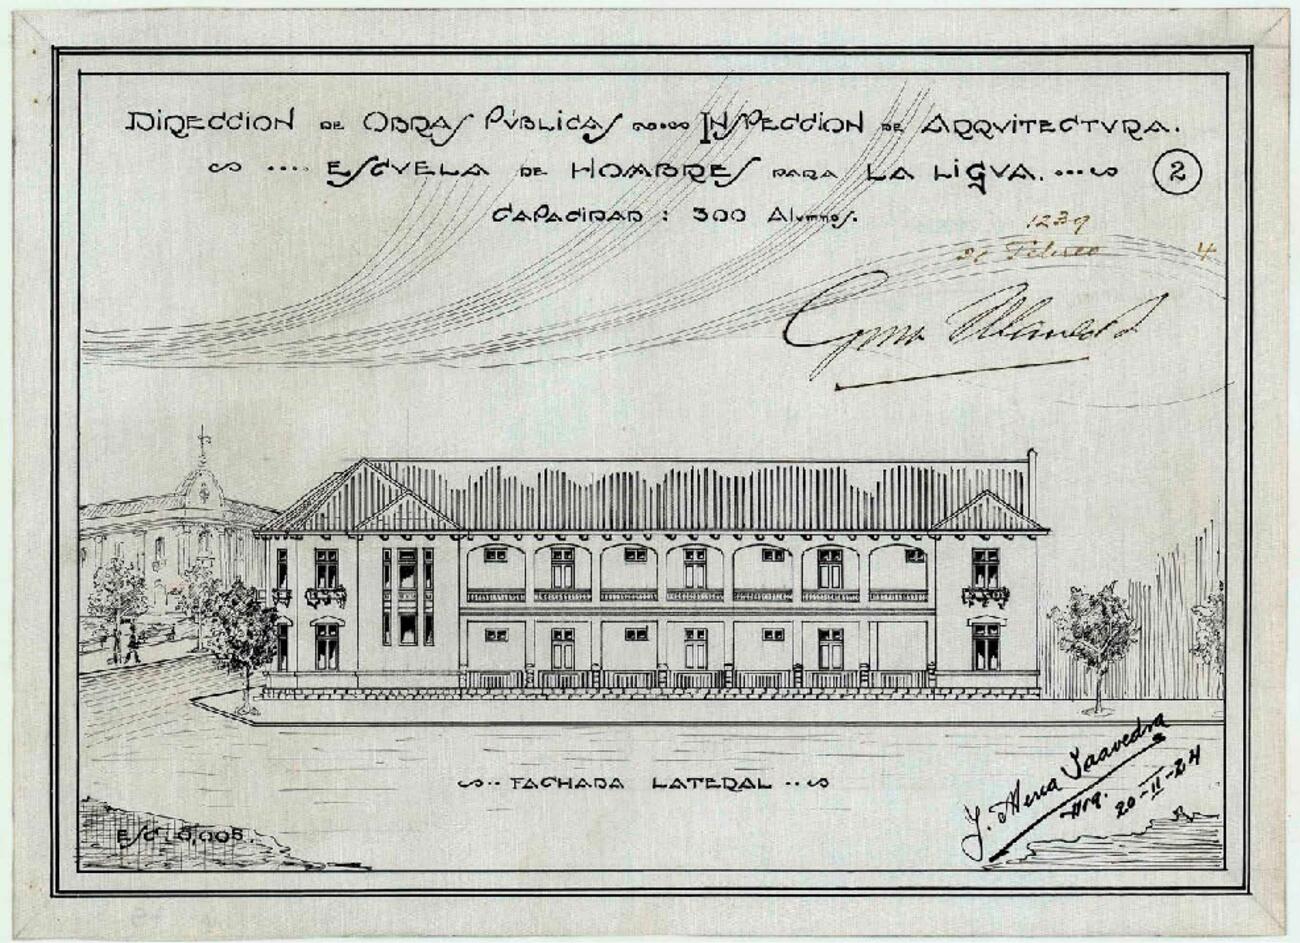 DIRECCION DE OBRAS PÚBLICAS INSPECCION DE ARQVITECTVRA.
ESCVELA DE HOMBRES PARA LA LIGVA. 2
CAPACIDAD: 300 Alvmnos.
1239
Febrero 4
FACHADA LATERAL
J. Mena Saavedra
Arq.
20-II-24
ESC. 0,005.